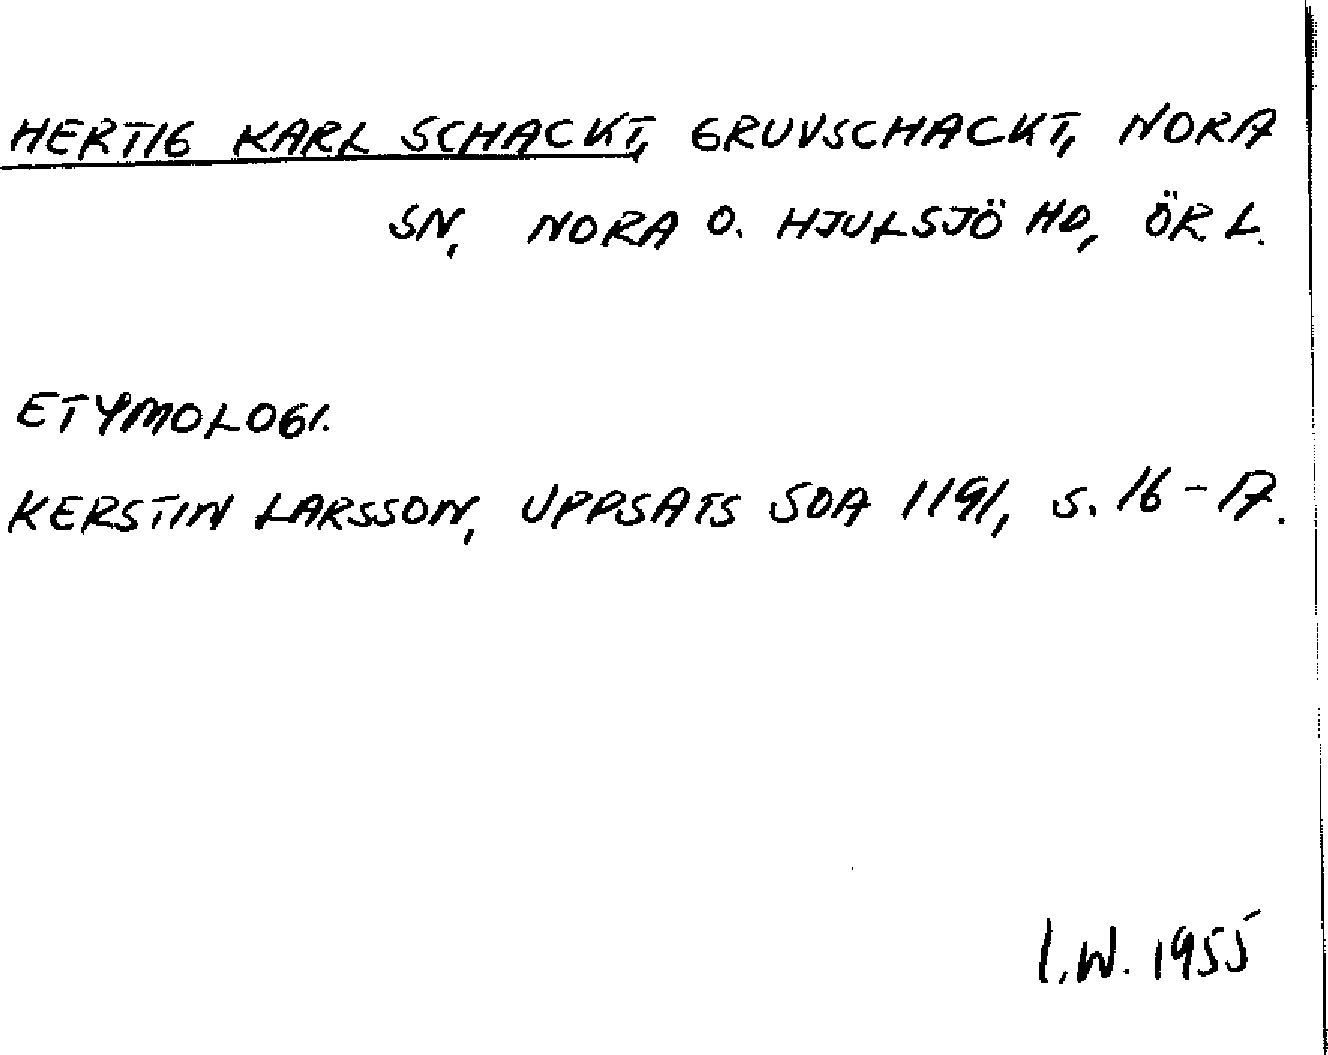 HERTIG KARL SCHACKT, GRUVSCHACKT, NORA
SN, NORA O. HJULSJÖ HD, ÖR L.
ETYMOLOGI.
KERSTIN LARSSON, UPPSATS SOA 1191, S. 16-17.
I.W. 1955